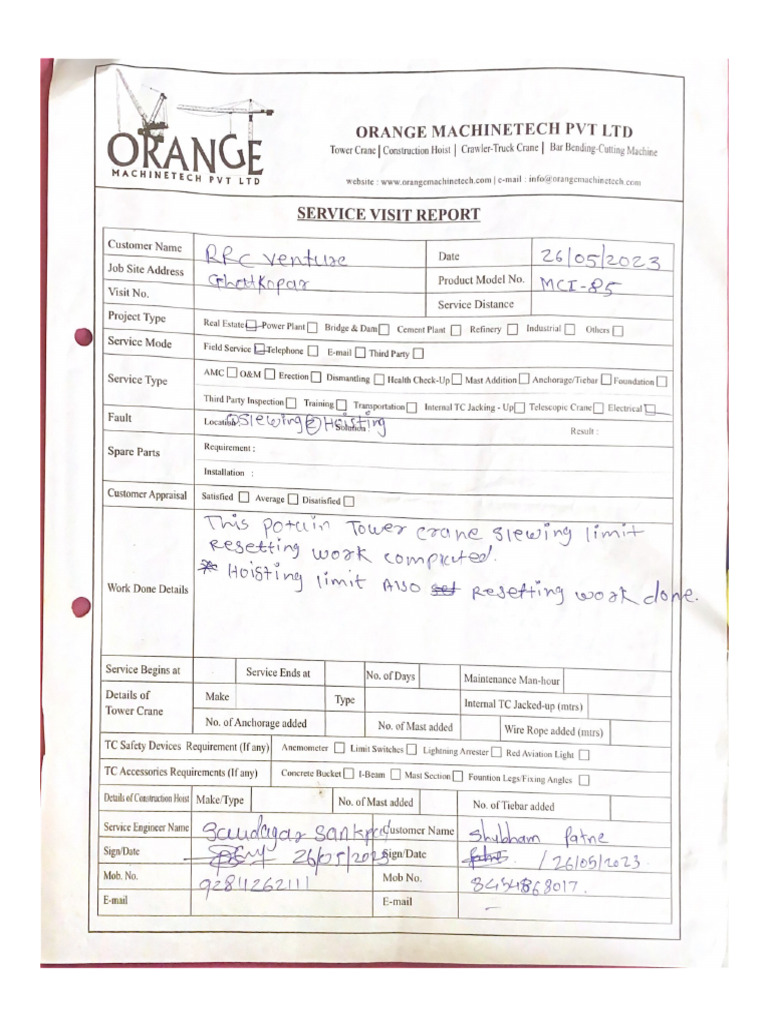 ORANGE
MACHINETECH PVT LTD
ORANGE MACHINETECH PVT LTD
Tower Crane | Construction Hoist | Crawler-Truck Crane | Bar Bending-Cutting Machine
website : www.orangemachinetech.com | e-mail : info@orangemachinetech.com
SERVICE VISIT REPORT
Customer Name RRC Venture Date 26/05/2023
Job Site Address Ghatkopar Product Model No. MCI-85
Visit No. Service Distance
Project Type Real Estate Power Plant Bridge & Dam Cement Plant Refinery Industrial Others
Service Mode Field Service Telephone E-mail Third Party
Service Type AMC O&M Erection Dismantling Health Check-Up Mast Addition Anchorage/Tiebar Foundation
Third Party Inspection Training Transportation Internal TC Jacking - Up Telescopic Crane Electrical
Fault Location ① Slewing ② Hoisting Solution Result :
Spare Parts Requirement :
Installation :
Customer Appraisal Satisfied Average Disatisfied
Work Done Details
This Potain Tower crane slewing limit
Resetting work completed.
* Hoisting limit Also set Resetting work done.
Service Begins at Service Ends at No. of Days Maintenance Man-hour
Details of Tower Crane Make Type Internal TC Jacked-up (mtrs)
No. of Anchorage added No. of Mast added Wire Rope added (mtrs)
TC Safety Devices Requirement (If any) Anemometer Limit Switches Lightning Arrester Red Aviation Light
TC Accessories Requirements (If any) Concrete Bucket I-Beam Mast Section Fountion Legs/Fixing Angles
Details of Construction Hoist Make/Type No. of Mast added No. of Tiebar added
Service Engineer Name Saudagar Sankpal Customer Name Shubham Patne
Sign/Date 26/05/2023 Sign/Date /26/05/2023
Mob. No. 9281262111 Mob No. 8454868017.
E-mail E-mail –